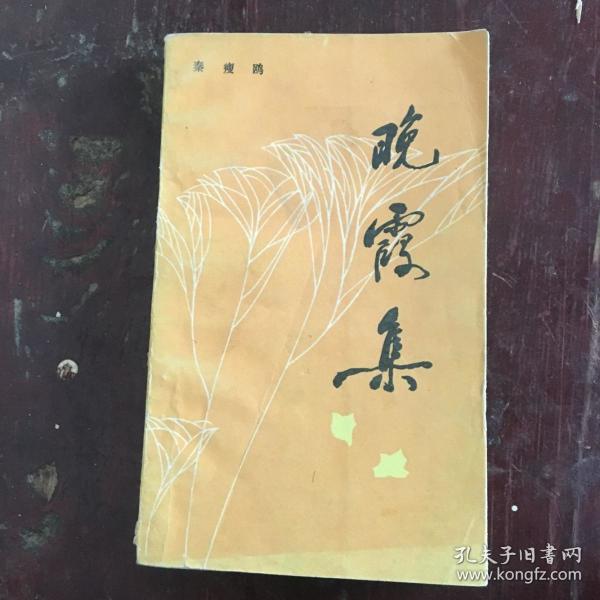 秦瘦鸥
晚霞集
孔夫子旧書网
www.kongfz.com